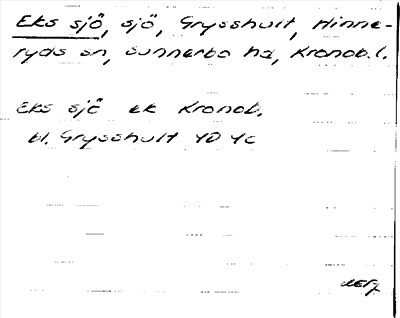 Eks sjö, sjö, Grysshult, Hinne-
ryds sn, Sunnerbo hd, Kronob. l.
Eks sjö ek Kronob.
bl. Grysshult 4D 4c